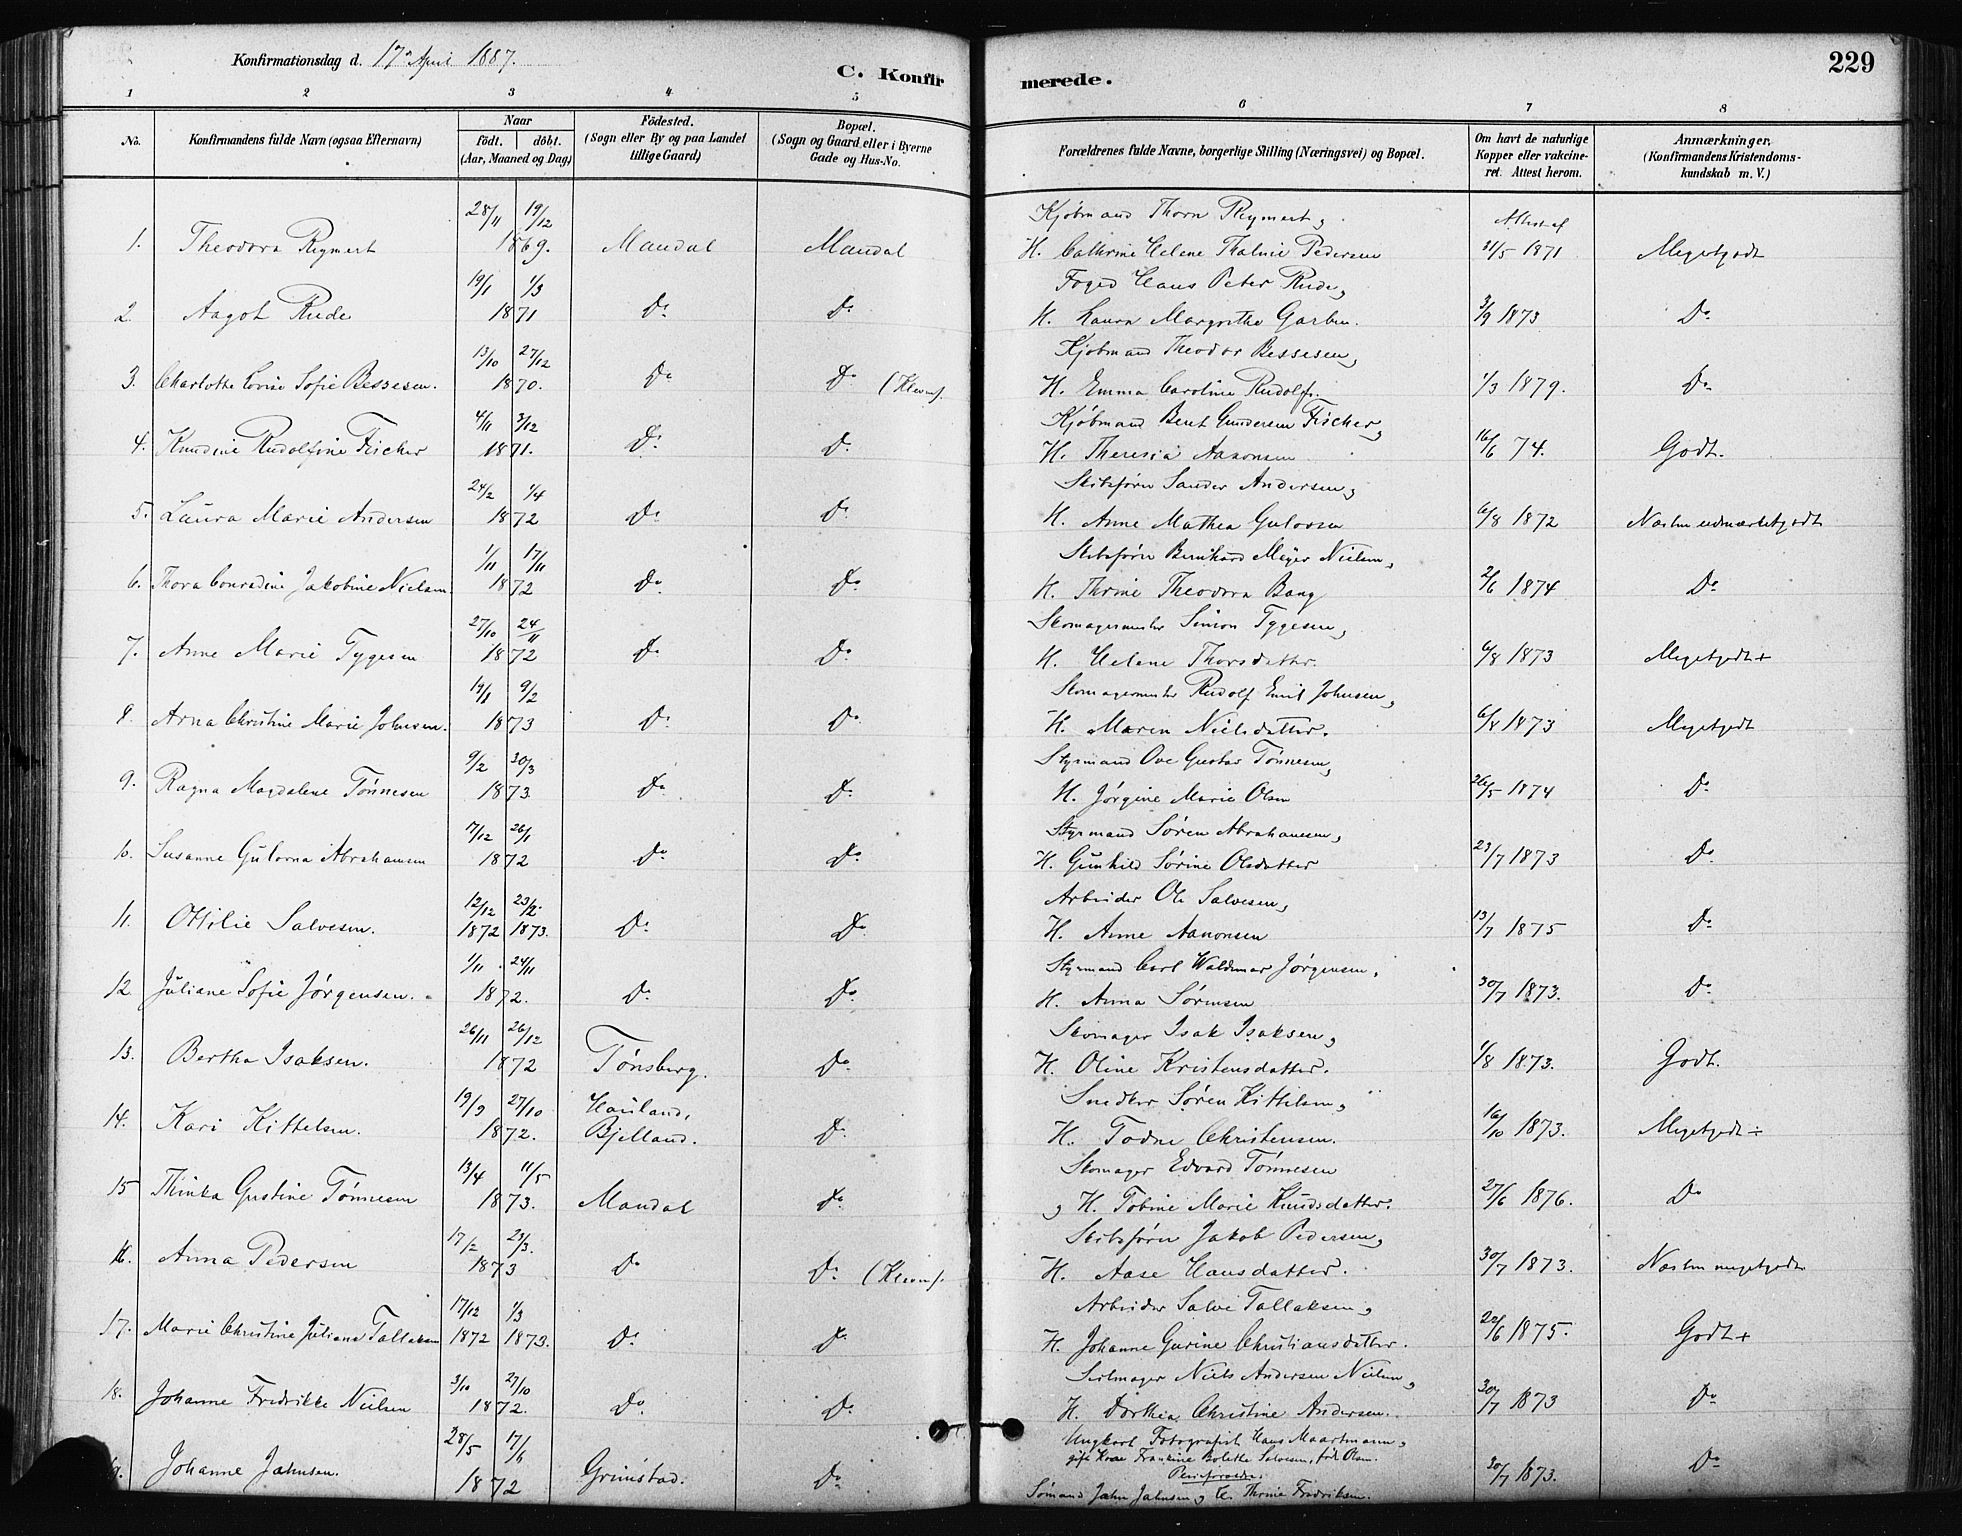 Konfirmationsdag d. 17de April 1887.
C. Konfirmerede.
229
1 2 3 4 5 6 7 8
No.
Konfirmandens fulde Navn (ogsaa Efternavn)
Naar
født. døbt.
(Aar, Maaned og Dag)
Fødested.
(Sogn eller By og paa Landet
tillige Gaard)
Bopæl.
(Sogn og Gaard eller i Byerne
Gade og Hus-No.
Forældrenes fulde Navne, borgerlige Stilling (Næringsvei) og Bopæl.
Om havt de naturlige
Kopper eller vakcine-
ret. Attest herom.
Anmærkninger.
(Konfirmandens Kristendoms-
kundskab m. V.)
28/11 19/12 Kjøbmand Thorn Reymert, Attest af
1. Theodora Reymert 1869. Mandal Mandal H. Cathrine Helene Thalmie Pedersen 31/5 1871 Megetgodt
19/1 1/3 Foged Hans Peter Rude,
2. Aagot Rude 1871 Do Do H. Laura Margrethe Garben. 3/9 1873 Do
13/10 27/12 Kjøbmand Theodor Bessesen,
3. Charlotte Lovise Sofie Bessesen. 1870. Do Do (Kleven). H. Emma Caroline Rudolfi. 1/3 1879. Do
4/11 3/12 Kjøbmand Bent Gundersen Fischer,
4. Knudine Rudolfine Fischer 1871. Do Do H. Theresia Aanonsen 16/6 74. Godt.
24/2 1/4 Skibsfører Sander Andersen,
5. Laura Marie Andersen 1872 Do Do H. Anne Mathea Gulovsen 6/8 1872 Næsten udmærketgodt
1/11 17/11 Skibsfører Bernhard Meyer Nielsen,
6. Thora Conradine Jakobine Nielsen. 1872 Do Do H. Thrine Theodora Bang 2/6 1874 Do
27/10 24/11 Skomagermester Simon Tygesen,
7. Anne Marie Tygesen 1872 Do Do H. Helene Thorsdatter. 6/8 1873 Megetgodt+
19/1 9/2 Skomagermester Rudolf Emil Johnsen,
8. Arna Christine Marie Johnsen. 1873 Do Do H. Maren Nielsdatter. 6/8 1873 Megetgodt
9/2 30/3 Styrmand Ove Gustav Tønnesen,
9. Ragna Magdalene Tønnesen 1873. Do Do H. Jørgine Marie Olsen 26/5 1874 Do
17/12 26/1 Styrmand Søren Abrahamsen,
10. Susanne Gulovna Abrahamsen 1872 Do Do H. Gunhild Sørine Olsdatter 23/7 1873 Do
12/12 23/2 Arbeider Ole Salvesen,
11. Ottilie Salvesen. 1872 1873. Do Do H. Anne Aanonsen 13/7 1875 Do
1/11 24/11 Styrmand Carl Waldemar Jørgensen,
12. Juliane Sofie Jørgensen. 1872. Do Do H. Anna Sørensen 30/7 1873. Do
26/11 26/12 Skomager Isak Isaksen,
13. Bertha Isaksen. 1872 Tønsberg. Do H. Oline Kristensdatter. 1/8 1873. Godt.
19/9 27/10 Hauland, Snedker Søren Kittelsen,
14. Kari Kittelsen. 1872. Bjelland. Do H. Todne Christensen. 16/10 1873. Megetgodt÷
13/4 11/5 Skomager Edvard Tønnesen
15 Thinka Gustine Tønnesen 1873. Mandal Do , H. Tobine Marie Knudsdatter. 27/6 1876. Do
17/2 23/3. Skibsfører Jakob Pedersen,
16. Anna Pedersen 1873 Do Do (Kleven). H. Aase Hansdatter. 30/7 1873. Næsten megetgodt
17/12 1/3 Arbeider Salve Tallaksen,
17. Marie Christine Juliane Tallaksen 1872 1873. Do Do H. Johanne Gurine Christiansdatter. 22/6 1875. Godt+
3/10 27/10 Seilmager Niels Andersen Nielsen,
18. Johanne Fredrikke Nielsen 1872. Do Do H. Dorthea Christine Andersen. 30/7 1873 Do
28/5 17/6 Ungkarl Fotografist Hans Maartmann,
gift Kone Frankine Bolette Salvesen, født Olsen.
Pleieforældre.
19. Johanne Jahnsen. 1872 Grimstad. Do Sømand Jahn Jahnsen, H. Thrine Fredriksen. 30/7 1873. Do